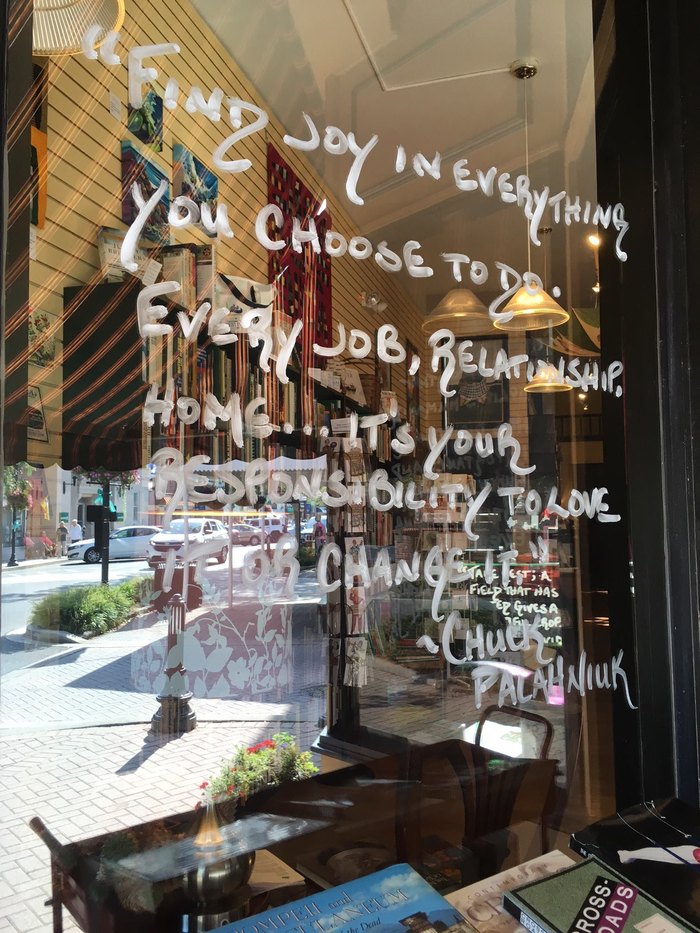 "FIND JOY IN EVERYTHING
YOU CHOOSE TO DO.
EVERY JOB, RELATIONSHIP,
HOME... IT'S YOUR
RESPONSIBILITY TO LOVE
IT OR CHANGE IT"
~CHUCK
PALAHNIUK
"TAKE REST; A
FIELD THAT HAS
GIVES A
CROP
POMPEII and
the Dead
CROSS-
ROADS